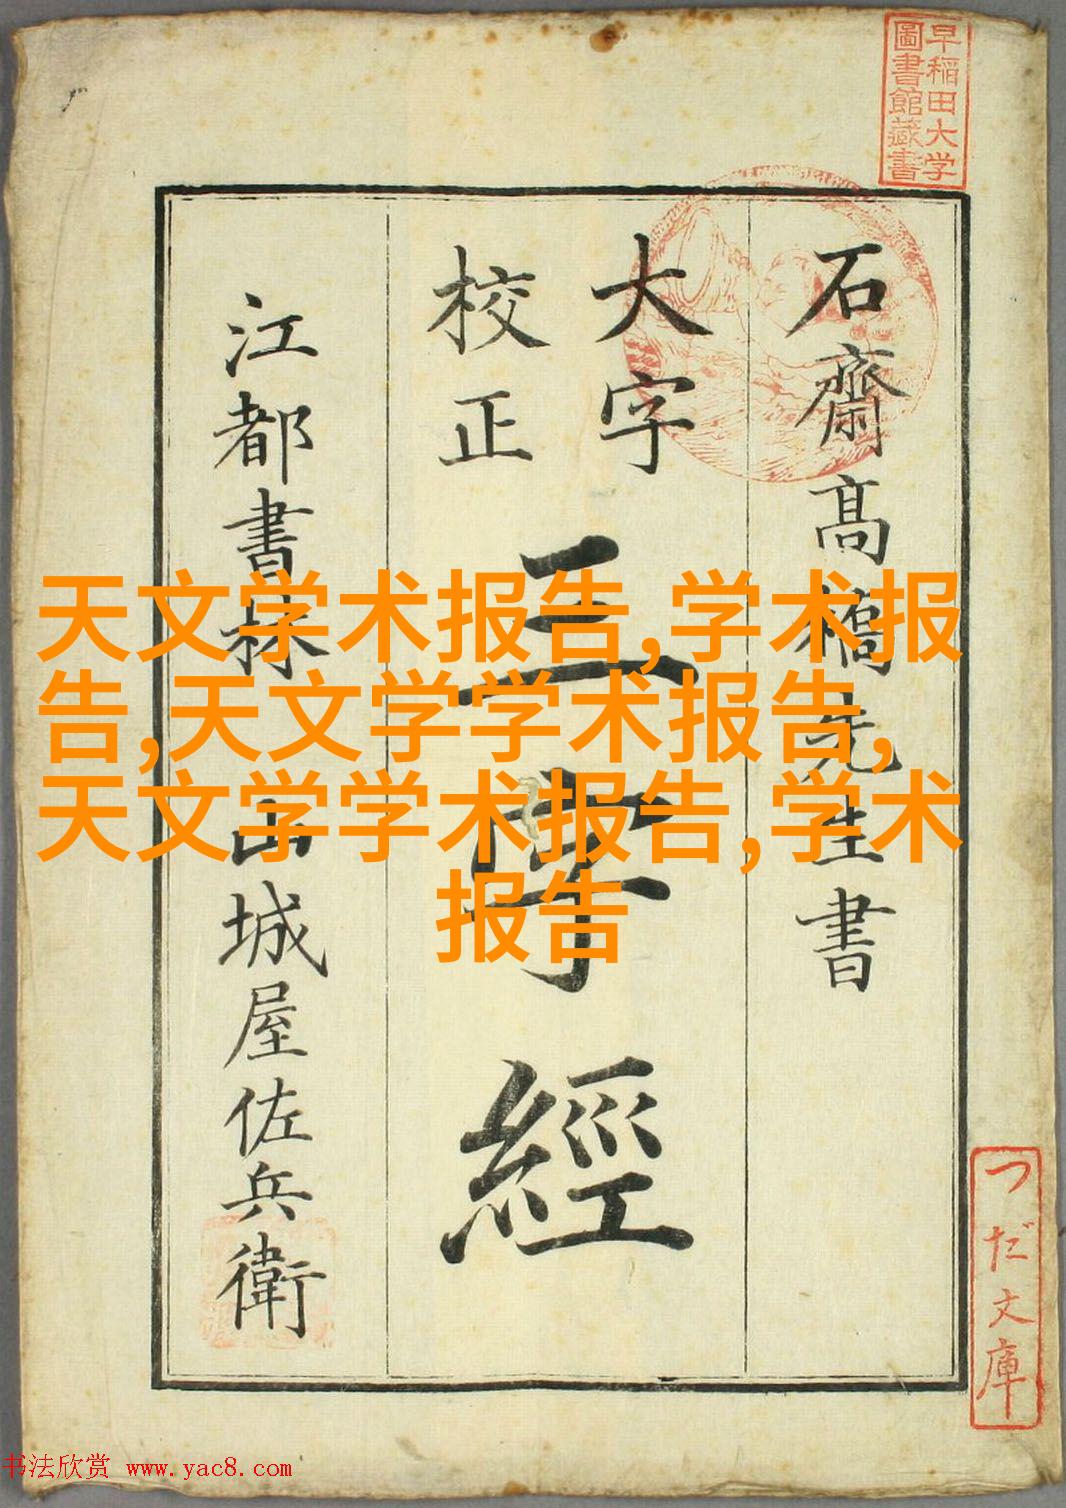 早稲田大学
圖書館藏書
石齋高橋先生書
大字
校正
三字經
江都書林
山城屋佐兵衛
つだ文庫
天文学术报告,学术报
告,天文学学术报告,
天文学学术报告,学术
报告
书法欣赏 www.yac8.com